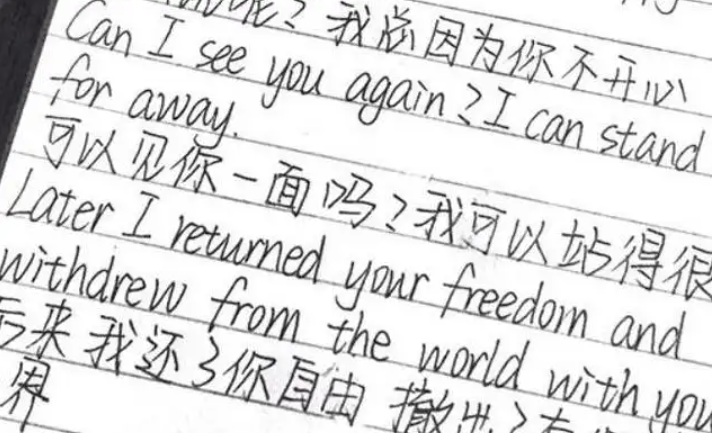 呢？我总因为你不开心
Can I see you again？I can stand
for away.
可以见你一面吗？我可以站得很
Later I returned your freedom and
withdrew from the world with you
后来我还了你自由 撤出了有
界